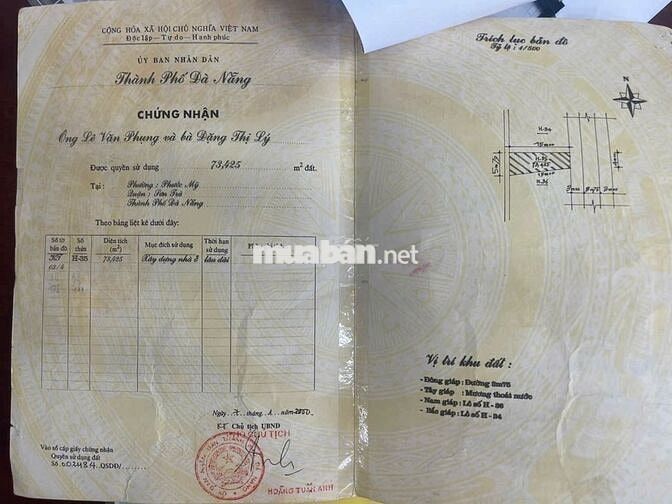 CỘNG HÒA XÃ HỘI CHỦ NGHĨA VIỆT NAM
Độc lập - Tự do - Hạnh phúc
ỦY BAN NHÂN DÂN
Thành Phố Đà Nẵng
CHỨNG NHẬN
Ông Lê Văn Phung và bà Đặng Thị Lý
Được quyền sử dụng 73,425 m² đất.
Tại : Phường : Phước Mỹ
Quận : Sơn Trà
Thành Phố Đà Nẵng
Theo bảng liệt kê dưới đây:
Số tờ bản đồ
Số thửa
Diện tích (m²)
Mục đích sử dụng
Thời hạn sử dụng
KT 03/4
H-35
73,425
Xây dựng nhà ở
lâu dài
Ngày
tháng
năm
KT Chủ tịch UBND
PHÓ CHỦ TỊCH
HOÀNG TUẤN ANH
Vào sổ cấp giấy chứng nhận
Quyền sử dụng đất
Số 002484 QSDĐ/
Trích lục bản đồ
Tỷ lệ : 1/500
N
H-34
15m00
H-35
H-36
Vị trí khu đất :
- Đông giáp: Đường 5m75
- Tây giáp : Mương thoát nước
- Nam giáp: Lô số H - 36
- Bắc giáp : Lô số H - 34
muaban.net